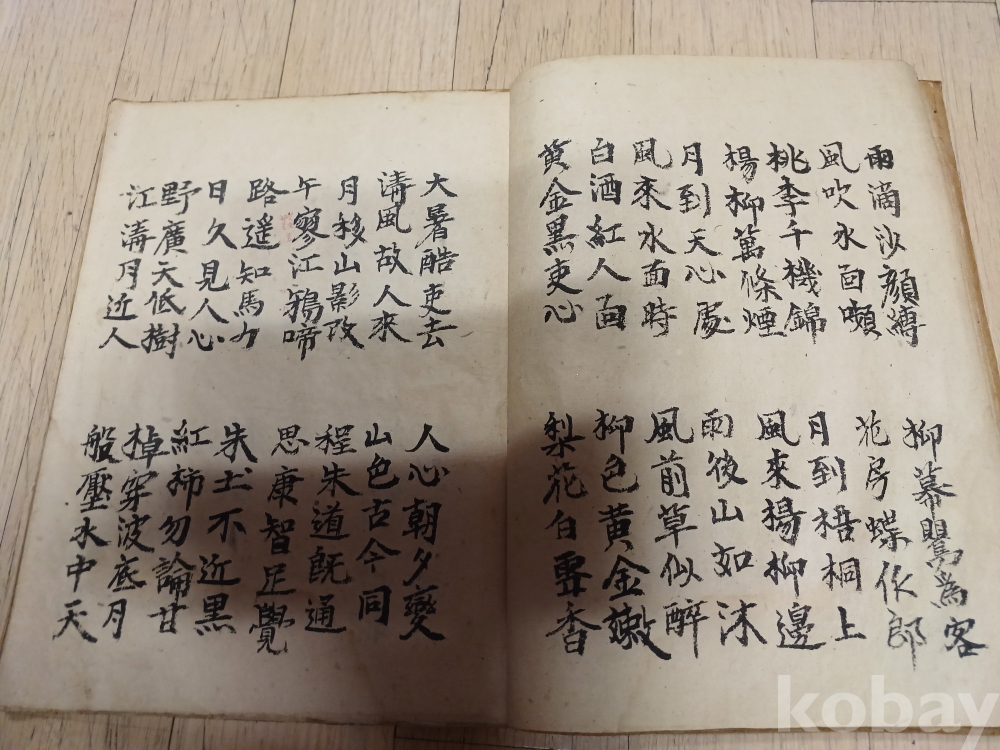 雨滴沙顔縛
風吹水面嚬
桃李千機錦
楊柳萬條煙
月到天心處
風來水面時
白酒紅人面
黃金黑吏心
柳幕鶯爲客
花房蝶作郎
月到梧桐上
風來楊柳邊
雨後山如沐
風前草似醉
柳色黃金嫩
梨花白雪香
大暑酷吏去
淸風故人來
月移山影改
午寥江鴉啼
路遥知馬力
日久見人心
野廣天低樹
江淸月近人
人心朝夕變
山色古今同
程朱道旣通
思康智足覺
朱土不近黑
紅柿勿論甘
棹穿波底月
般壓水中天
kobay